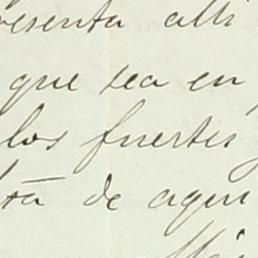 resenta alli
que sea en
los fuertes
sta de aqui